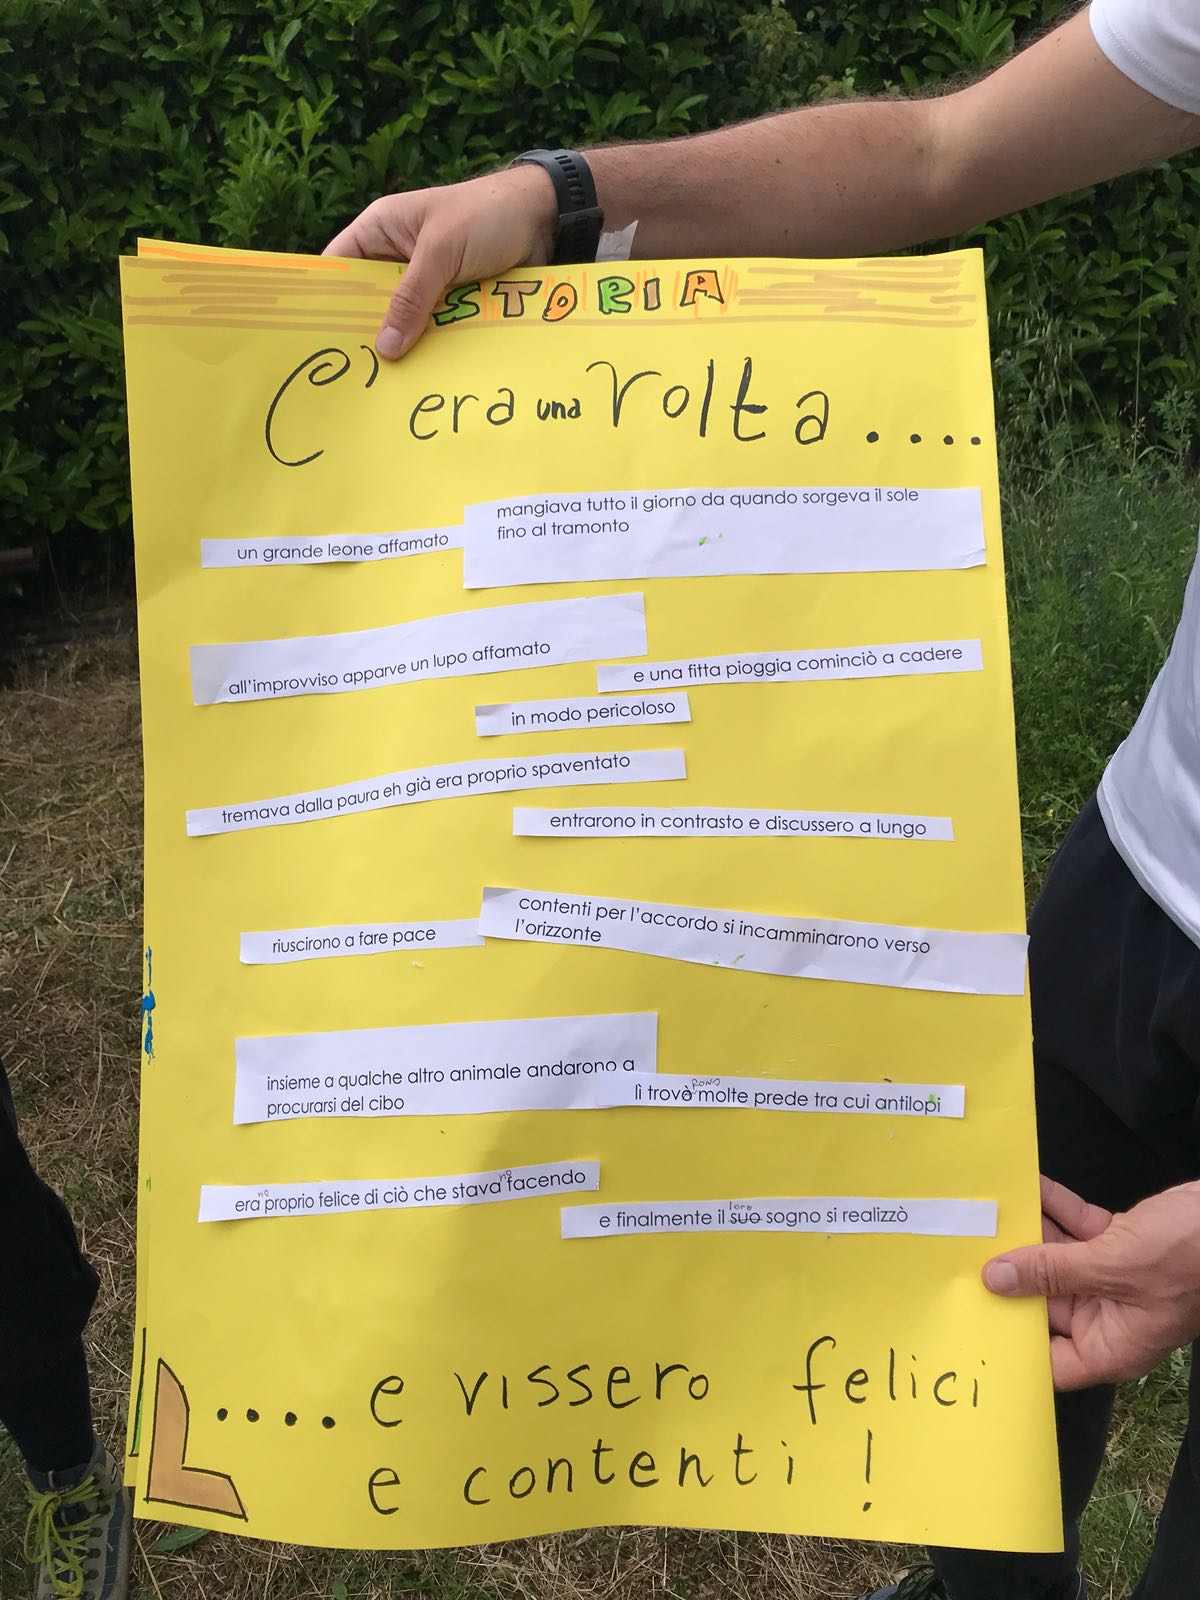 STORIA
C'era una volta....
un grande leone affamato
mangiava tutto il giorno da quando sorgeva il sole
fino al tramonto
all'improvviso apparve un lupo affamato
e una fitta pioggia cominciò a cadere
in modo pericoloso
tremava dalla paura eh già era proprio spaventato
entrarono in contrasto e discussero a lungo
riuscirono a fare pace
contenti per l'accordo si incamminarono verso
l'orizzonte
insieme a qualche altro animale andarono a
procurarsi del cibo
lì trovò rono molte prede tra cui antilopi
era no proprio felice di ciò che stava no facendo
e finalmente il suo loro sogno si realizzò
.... e vissero felici
e contenti!
L